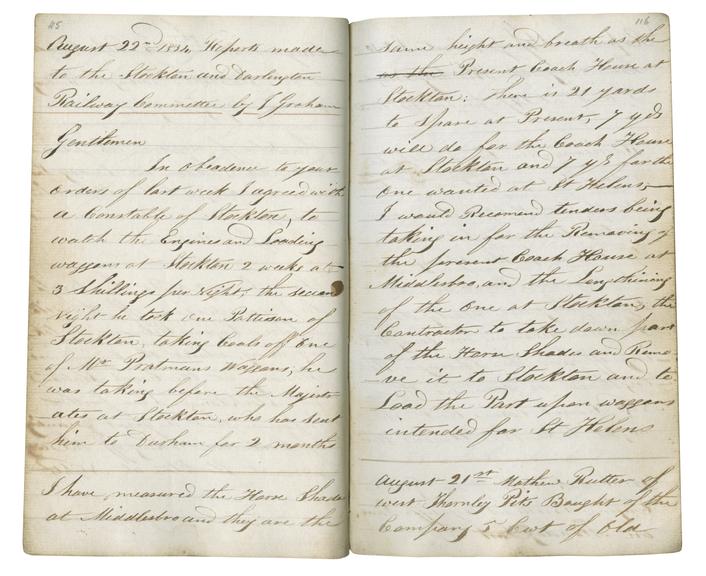 115
August 22nd 1834 Reports made
to the Stockton and Darlington
Railway Committee by J Graham
Gentlemen
In obedence to your
orders of last week I agreed with
a Constable of Stockton, to
watch the Engines and Loading
waggons at Stockton 2 weeks at
3 Shillings per night, the second
night he took one Pattison of
Stockton, taking Coals off one
of Mr Pratmans waggons, he
was taking before the Majestr
ates at Stockton, who has sent
him to Durham for 2 months
I have measured the Horse Shades
at Middlesbro and they are the
116
same height and breath as the
as the Present Coach House at
Stockton: there is 21 yards
to spare at Present, 7 yds
will do for the Coach House
at Stockton and 7 yds for the
one wanted at St Helens,
I would Recomend tenders being
taking in for the Removing of
the present Coach House at
Middlesbro, and the Lengthining
of the one at Stockton, the
Contractor to take down part
of the Horse Shades and Remo-
ve it to Stockton and to
Load the Part upon waggons
intended for St Helens
August 21st Mathew Rutter of
west Thornley Pits Baught of the
Company 5 Cwt of Old